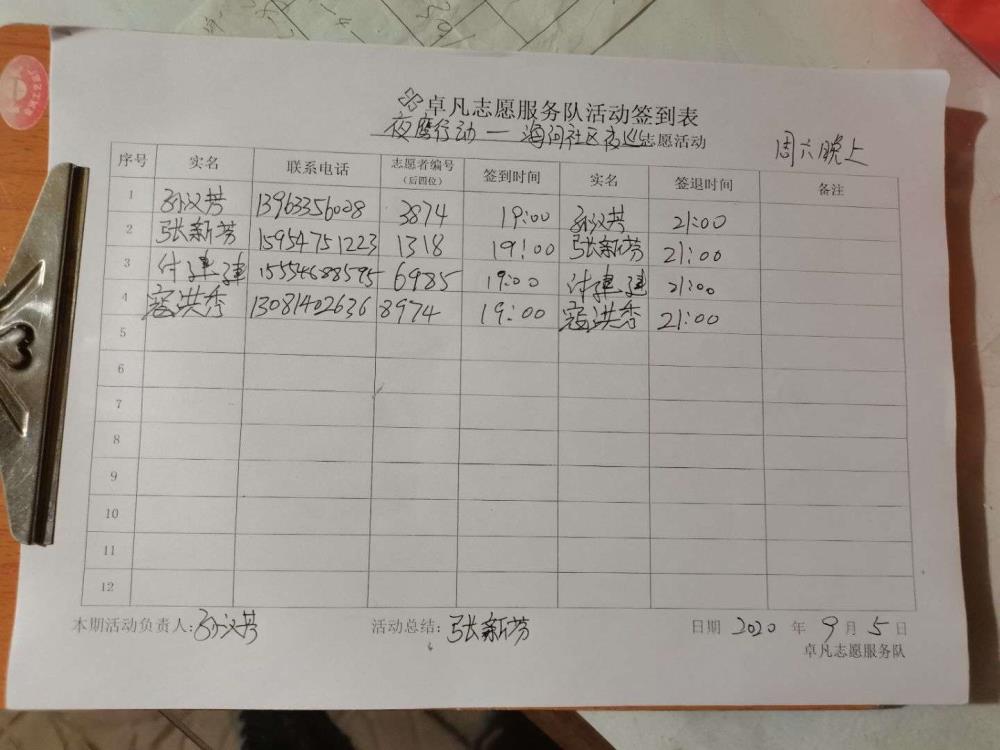 卓凡志愿服务队活动签到表
夜鹰行动一海河社区夜巡志愿活动
周六晚上
序号 实名 联系电话 志愿者编号(后四位) 签到时间 实名 签退时间 备注
1 孙汉芳 13963356028 3874 19:00 孙汉芳 21:00
2 张新芳 15954751223 1318 19:00 张新芳 21:00
3 付建建 15554688595 6985 19:00 付建建 21:00
4 寇洪秀 13081402636 8974 19:00 寇洪秀 21:00
5
6
7
8
9
10
11
12
本期活动负责人:孙汉芳 活动总结:张新芳 日期 2020 年 9 月 5 日
卓凡志愿服务队